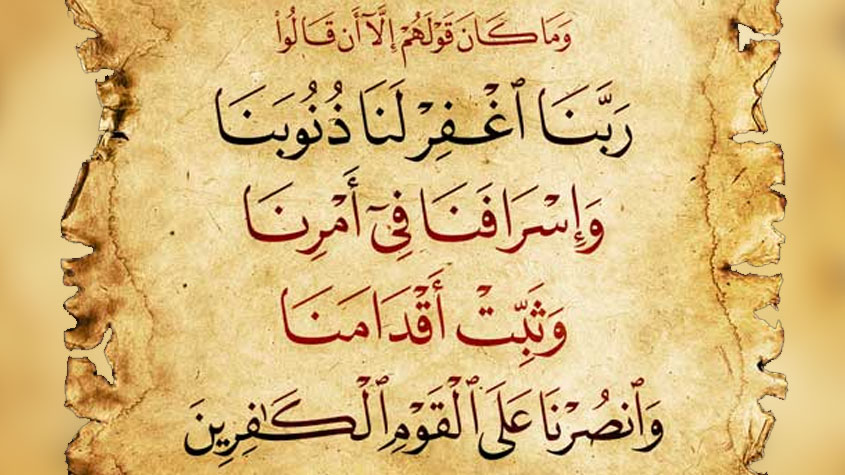 وَمَا كَانَ قَوْلَهُمْ إِلَّآ أَن قَالُوا۟
رَبَّنَا ٱغْفِرْ لَنَا ذُنُوبَنَا
وَإِسْرَافَنَا فِىٓ أَمْرِنَا
وَثَبِّتْ أَقْدَامَنَا
وَٱنصُرْنَا عَلَى ٱلْقَوْمِ ٱلْكَـٰفِرِينَ